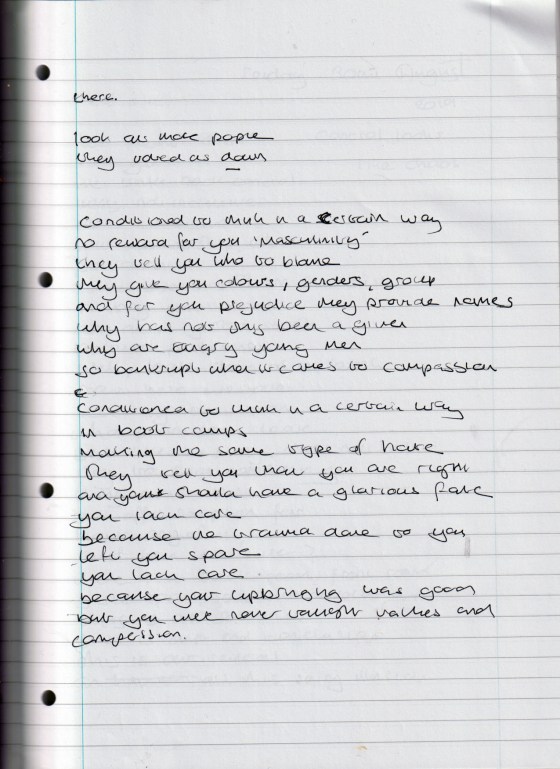 there.
look at more people
they voted us down
Conditioned to think in a certain way
no reward for you 'masculinity'
they tell you who to blame
they give you colours, genders, group
and for you prejudice they provide names
why has not this been a given
why are angry young men
so bankrupt when it comes to compassion
Conditioned to think in a certain way
in boot camps
making the same type of hate
They tell you that you are right
and should have a glorious fate
you lack care
because the trauma done to you
left you spare
you lack care.
because your upbringing was good
but you were never taught values and
compassion.